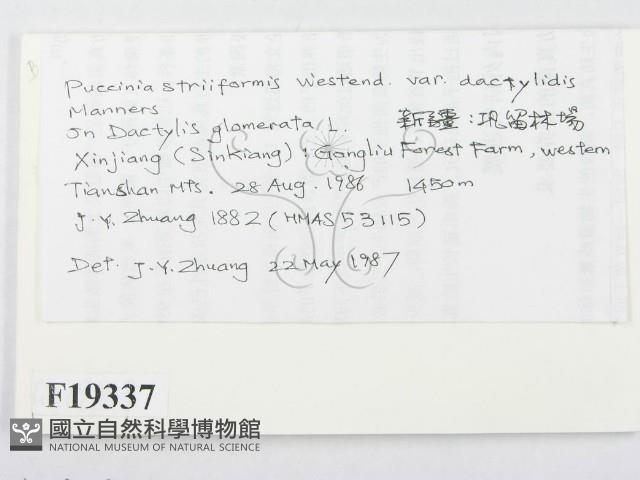 Puccinia striiformis Westend. var. dactylidis
Manners
on Dactylis glomerata L. 新疆:巩留林場
Xinjiang (Sinkiang): Gongliu Forest Farm, western
Tianshan Mts. 28 Aug. 1986 1450m
J.Y. Zhuang 1882 (HMAS 53115)
Det. J.Y. Zhuang 22 May 1987
F19337
國立自然科學博物館
NATIONAL MUSEUM OF NATURAL SCIENCE